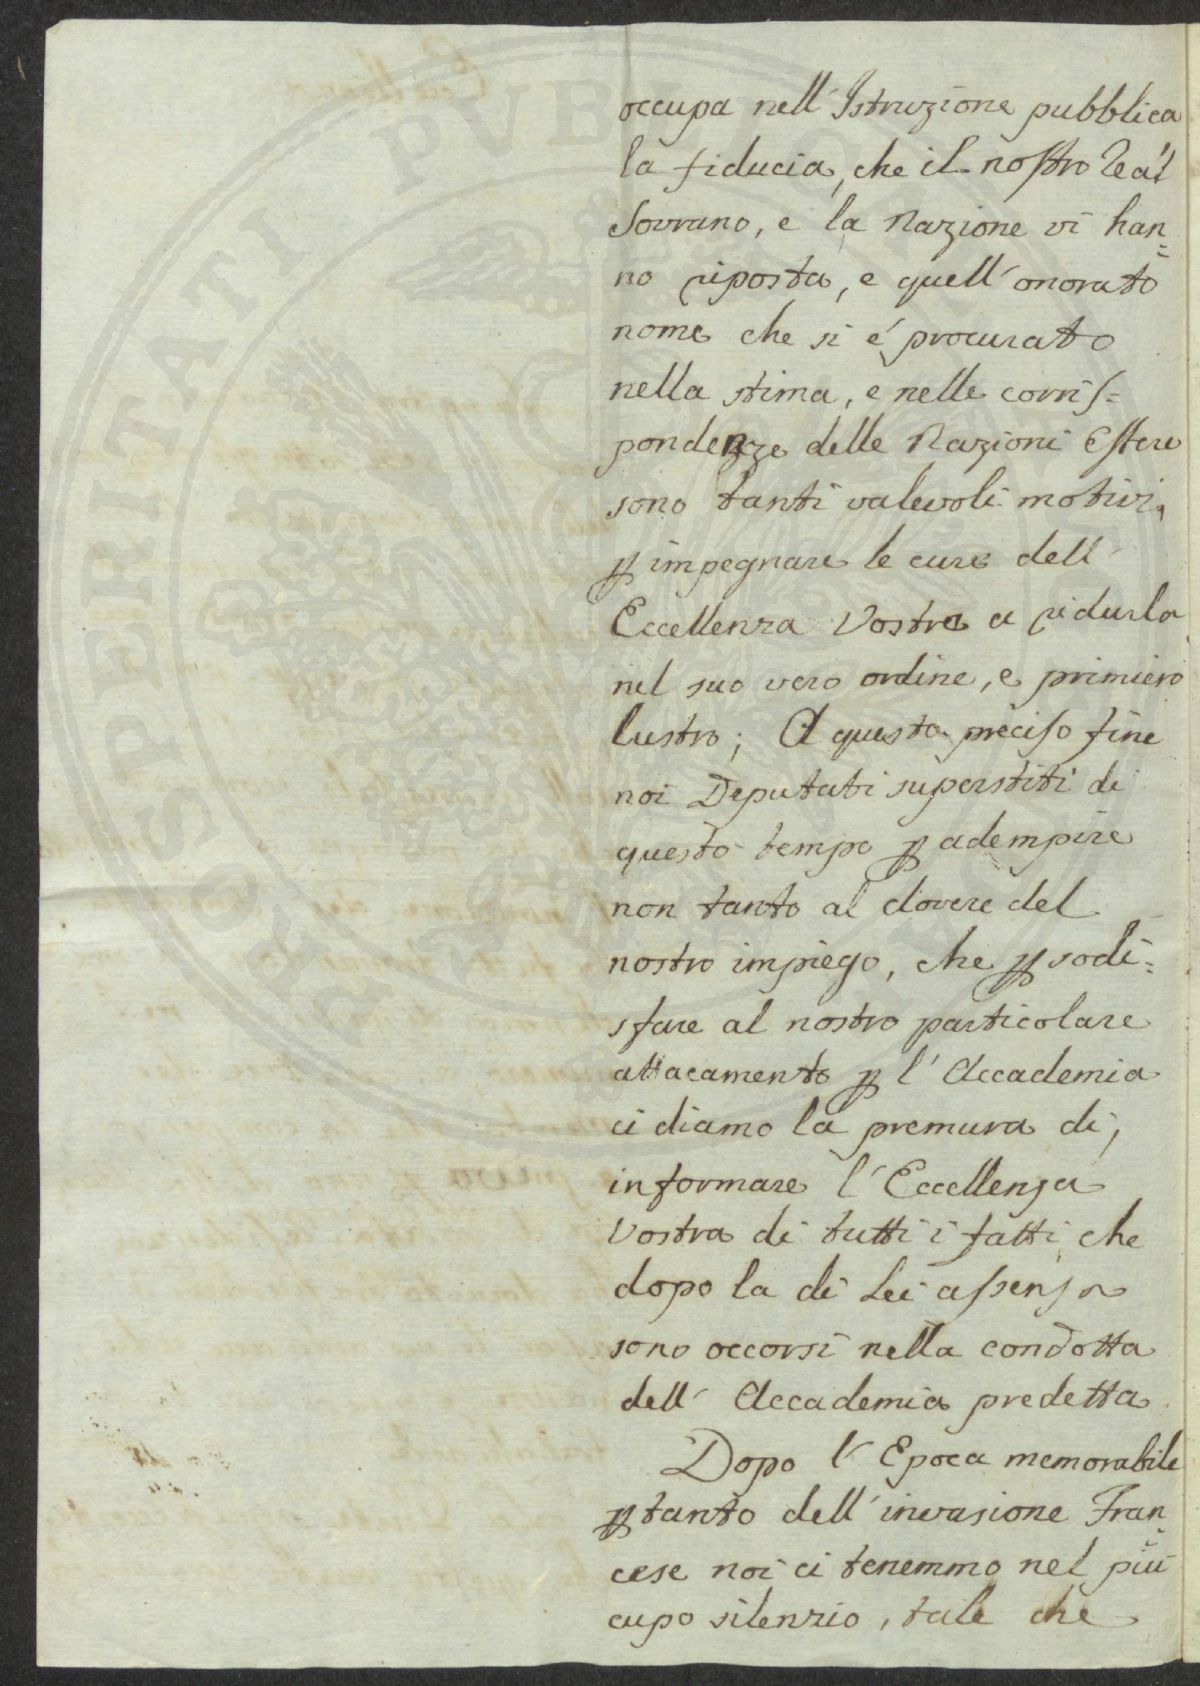 occupa nell'Istruzione pubblica
la fiducia, che il nostro Real
Sovrano, e la Nazione vi han=
no riposta, e quell'onorato
nome che si é procurato
nella stima, e nelle corris=
pondenze delle Nazioni Estere
sono tanti valevoli motivi,
ꝑ impegnare le cure dell'
Eccellenza Vostra a ridurla
nel suo vero ordine, e primiero
lustro; A questo preciso fine
noi Deputati superstiti di
questo tempo ꝑ adempire
non tanto al dovere del
nostro impiego, che ꝑ sodi=
sfare al nostro particolare
attacamento ꝑ l'Accademia
ci diamo la premura di,
informare l'Eccellenza
Vostra di tutti i fatti, che
dopo la di Lei assenza
sono occorsi nella condotta
dell' Accademia predetta
Dopo l'Epoca memorabile
ꝑ tanto dell'invasione Fran=
cese noi ci tenemmo nel piú
cupo silenzio, tale che
PROSPERITATI PVBLICAE